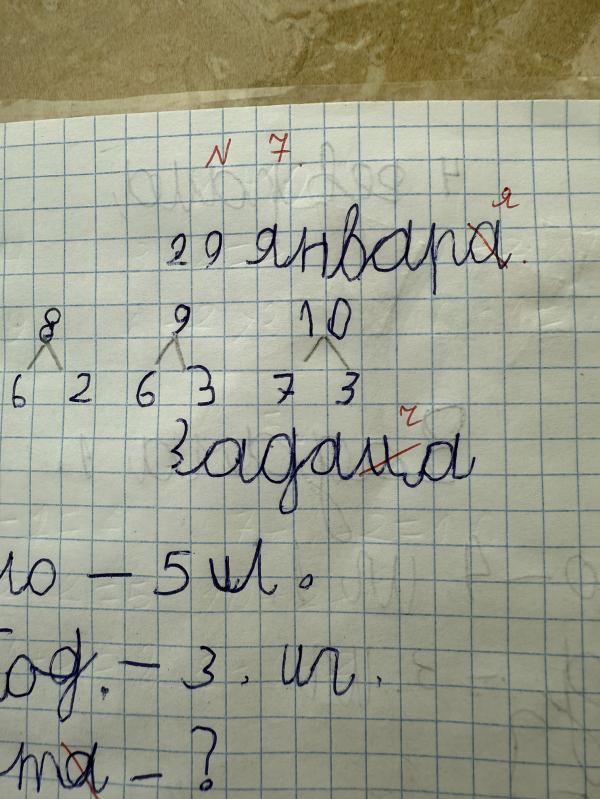 N 7.
29 январа я
8 9 10
6 2 6 3 7 3
Задаиа ч
ло – 5 шт.
под. – 3. шт.
та – ?